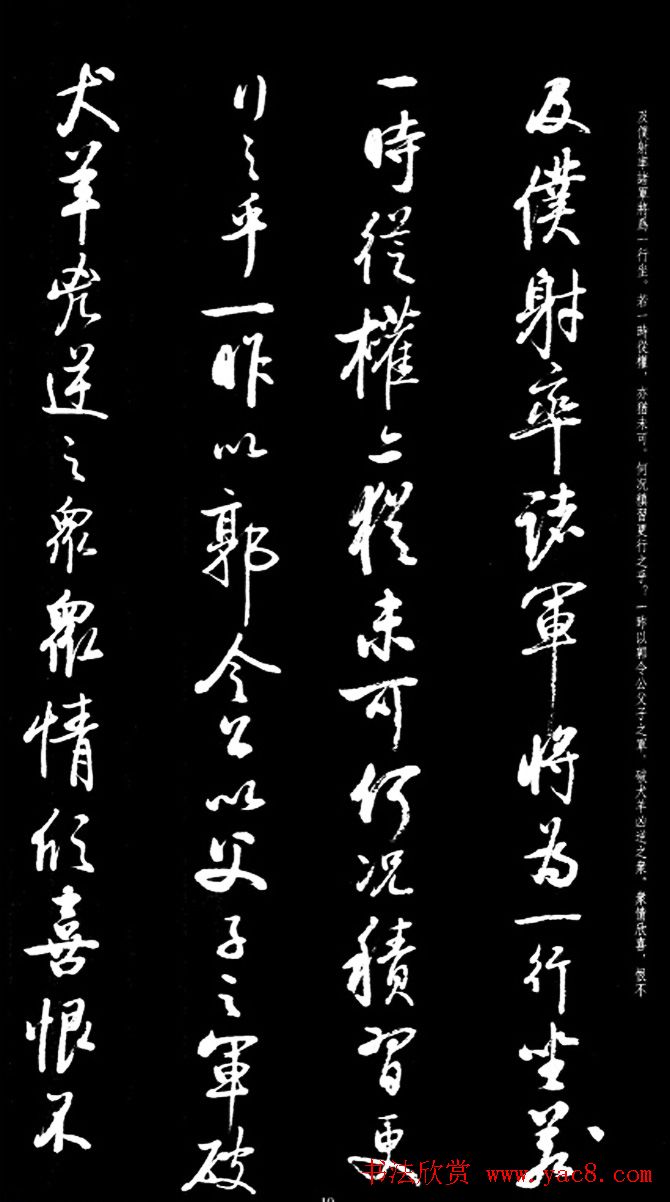 及僕射率諸軍將爲一行坐。若一時從權,亦猶未可。何況積習更行之乎?一昨以郭令公父子之軍,破犬羊凶逆之衆,衆情欣喜,恨不
及僕射率諸軍將為一行坐若
一時從權亦猶未可何況積習更
行之乎一昨以郭令公以父子之軍破
犬羊兇逆之眾眾情欣喜恨不
书法欣赏 www.yac8.com